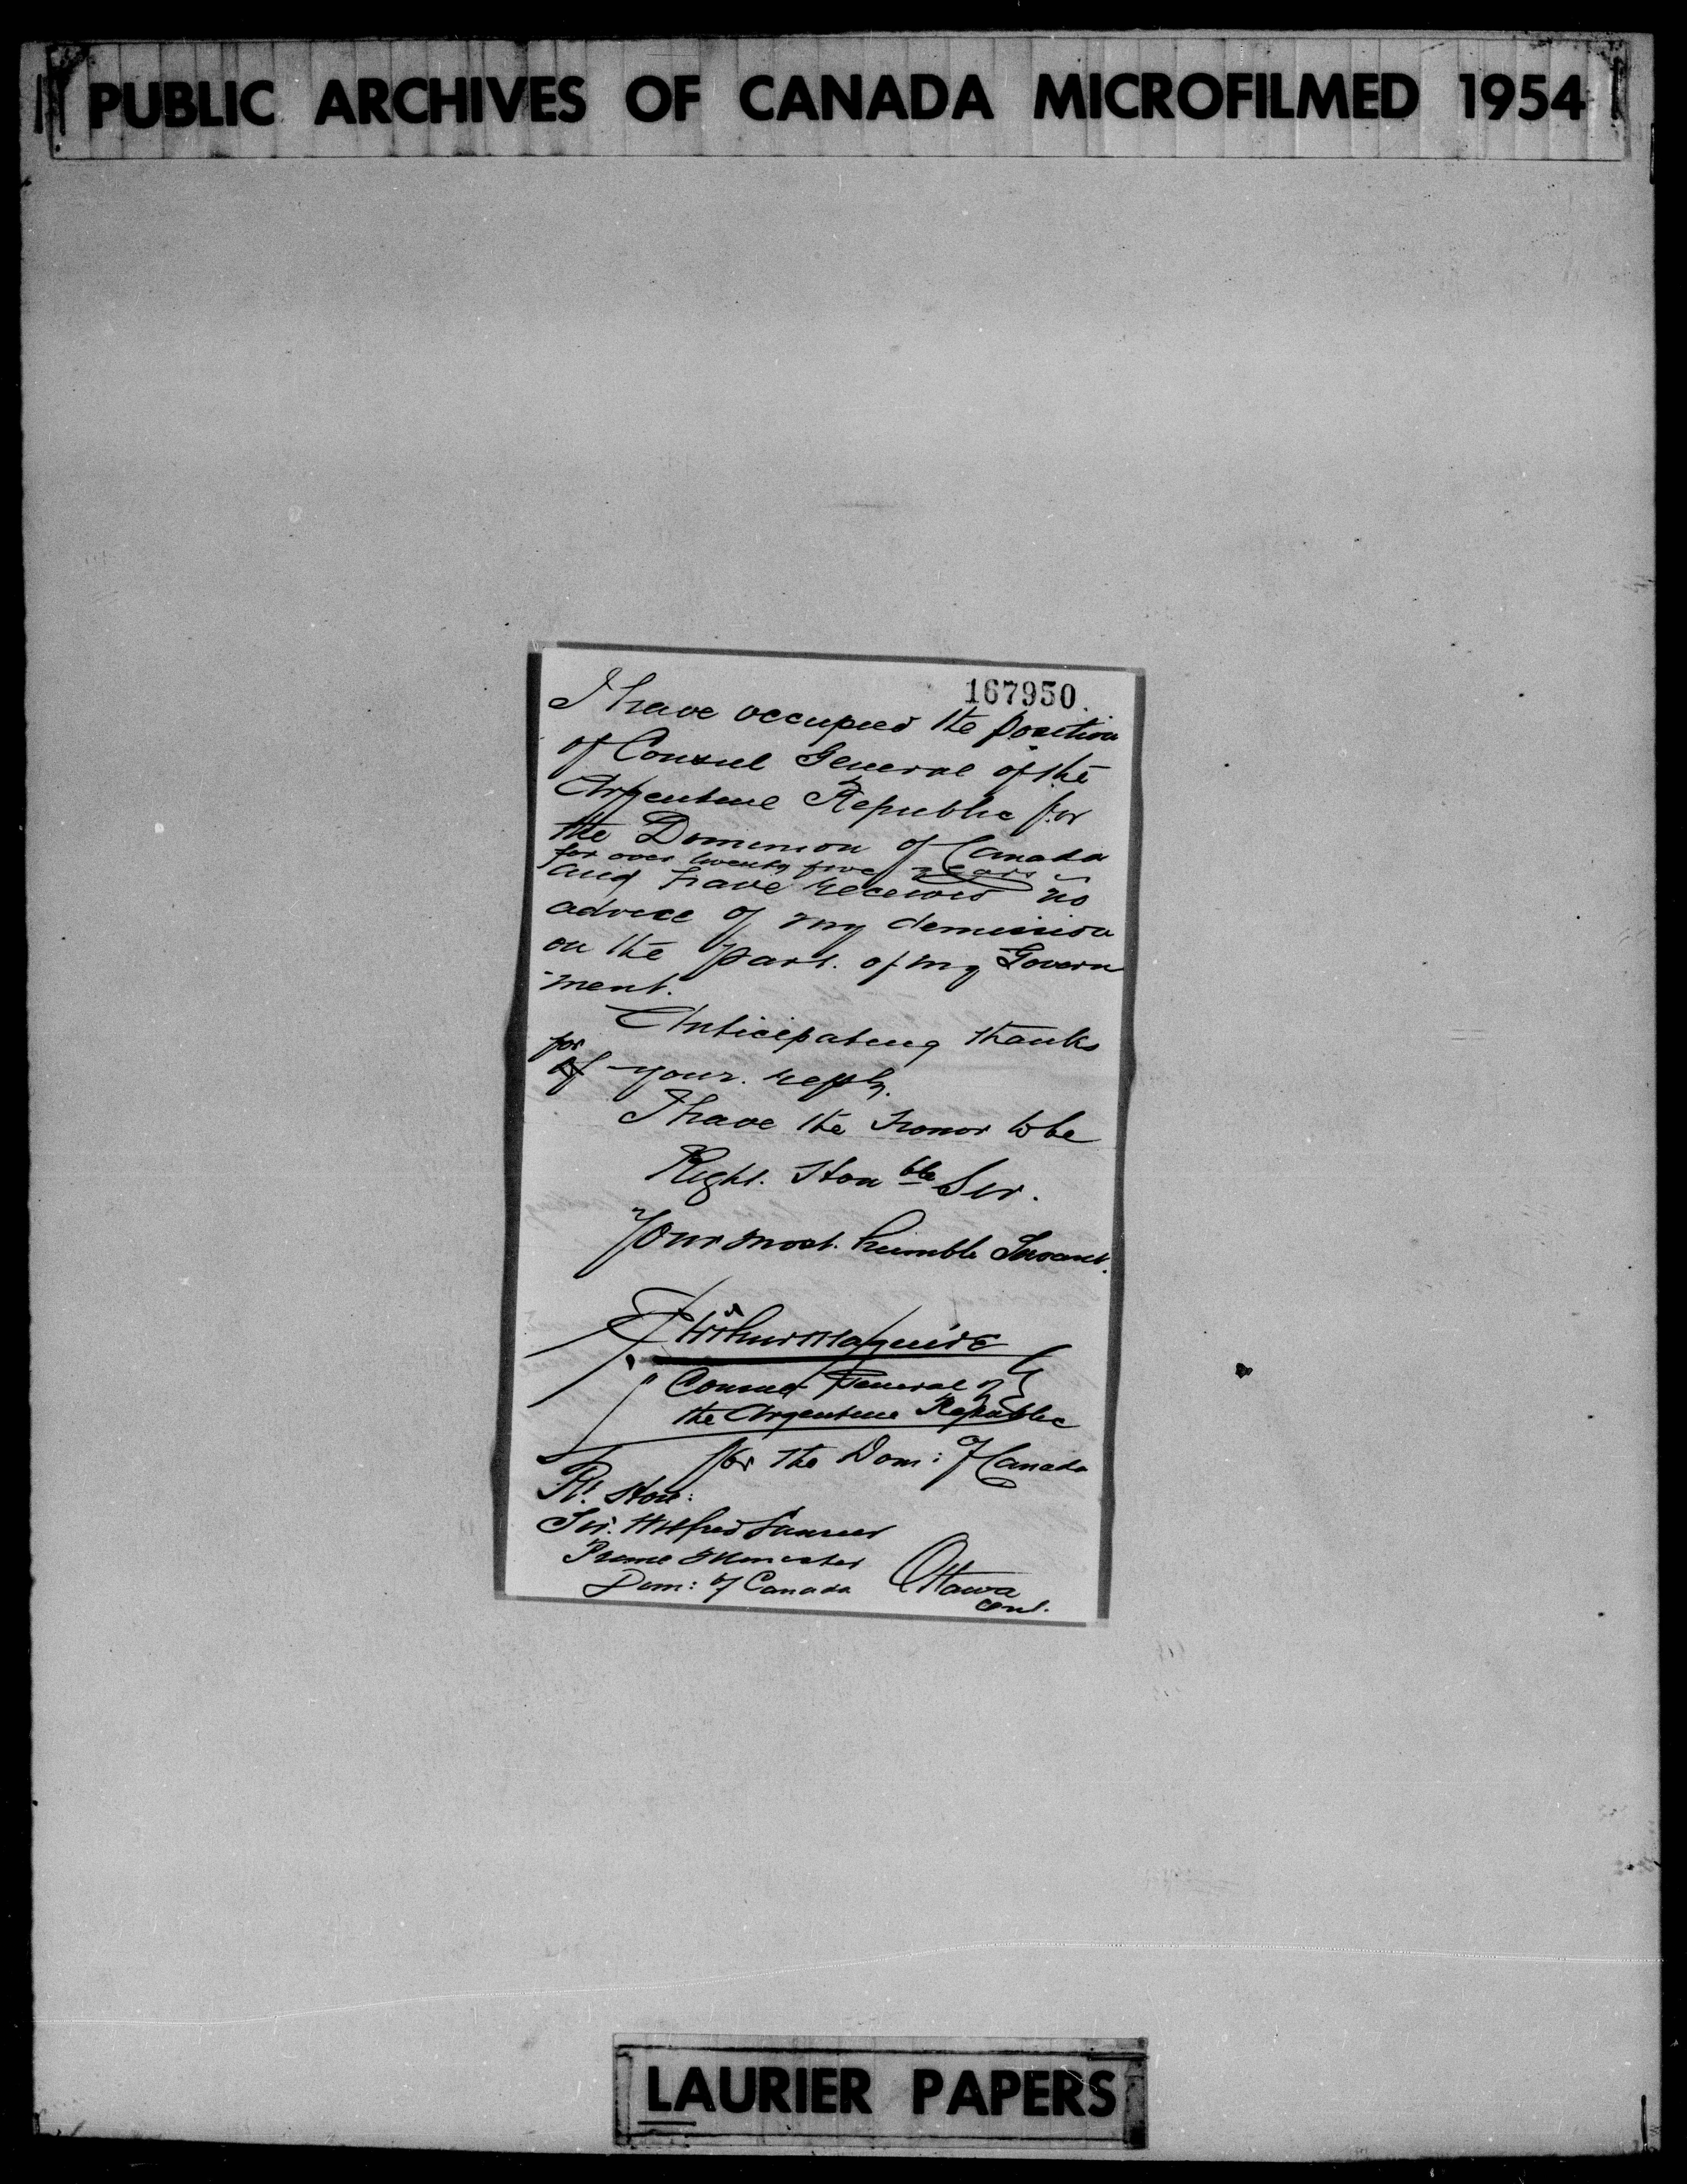 PUBLIC ARCHIVES OF CANADA MICROFILMED 1954
167950
I have occupied the position
of Consul General of the
Argentine Republic for
the Dominion of Canada
for over twenty five years
and have received no
advice of my demission
on the part. of my Govern
-ment.
Anticipating thanks
for
of your. reply.
I have the honor to be
Right. Hon ble Sir.
Your most. humble Servant.
Arthur Maguire
Consul General of
the Argentine Republic
for the Dom: of Canada
To
Rt. Hon:
Sir. Wilfred Laurier
Prime Minister
Dom: of Canada Ottawa
Ont.
LAURIER PAPERS